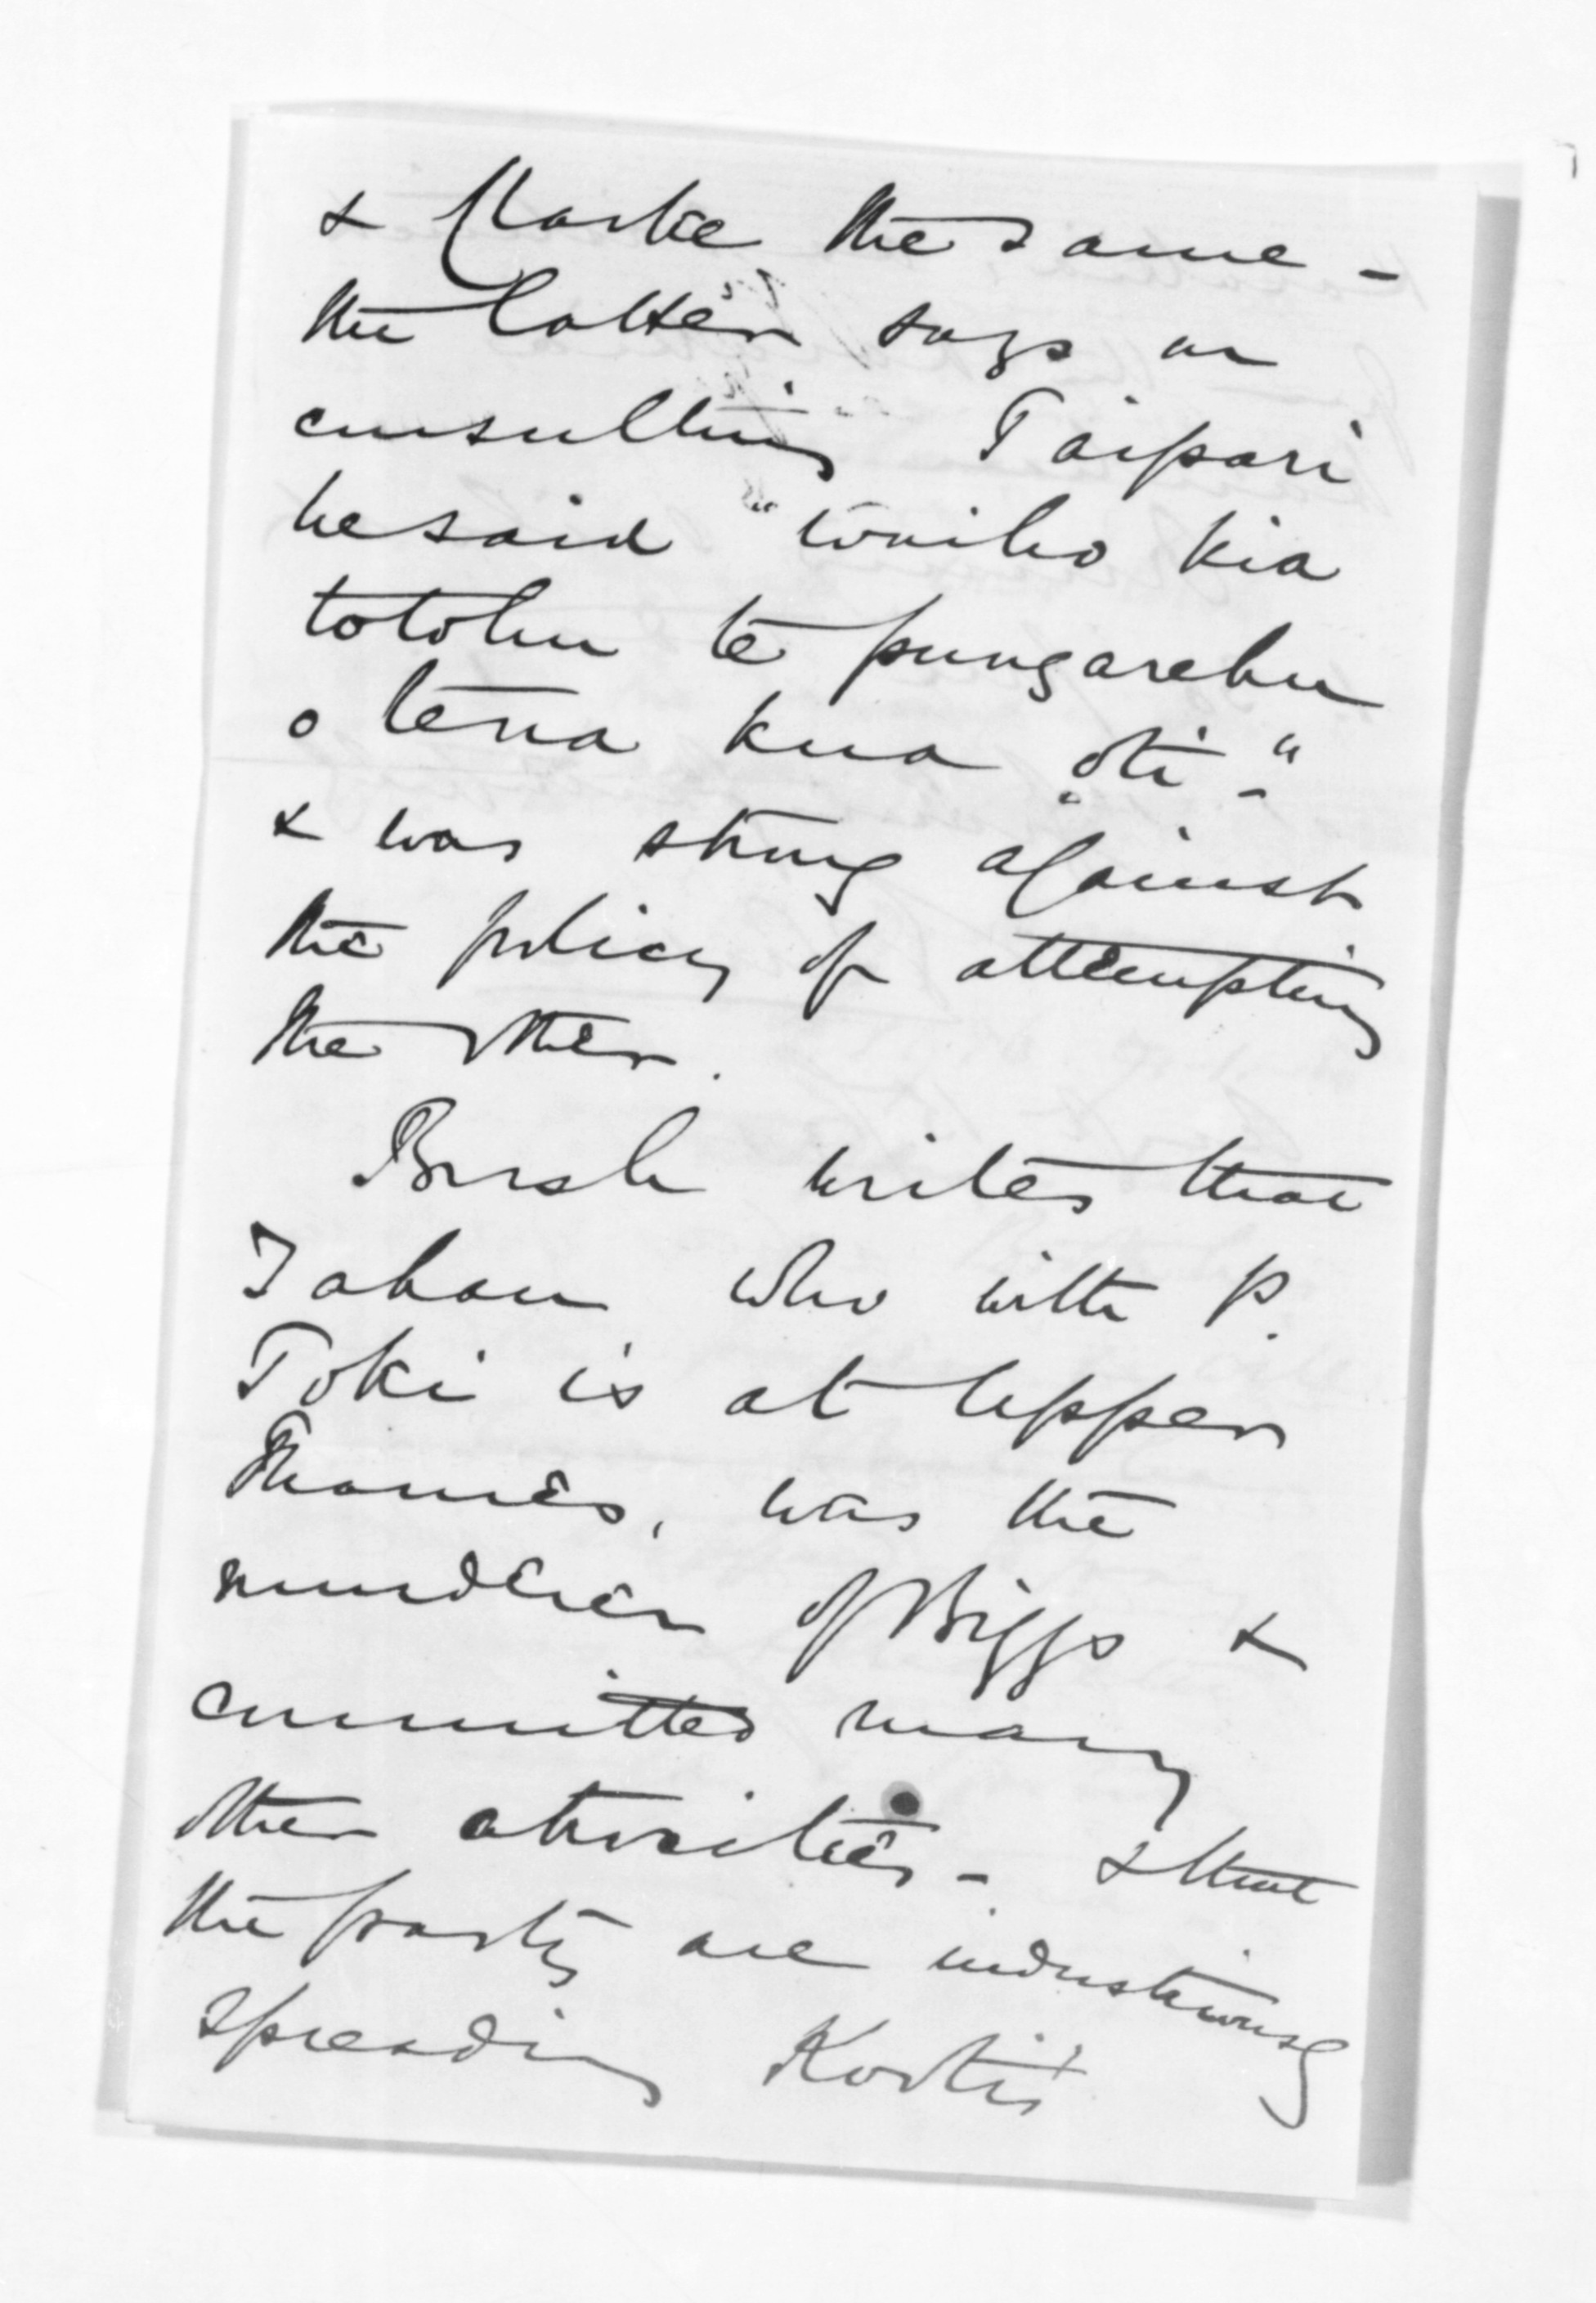 & Clarke the same -
the latter says on
consulting Taipari
he said "waiho kia
totohu te pungarehu
o tena kua oti -"
& was strong against
the policy of attempting
the other.
Bush writes that
Tahau who with P.
Toki is at Upper
Thames, was the
murderer of Biggs &
committed many
other atrocities - & that
the party are industriously
spreading